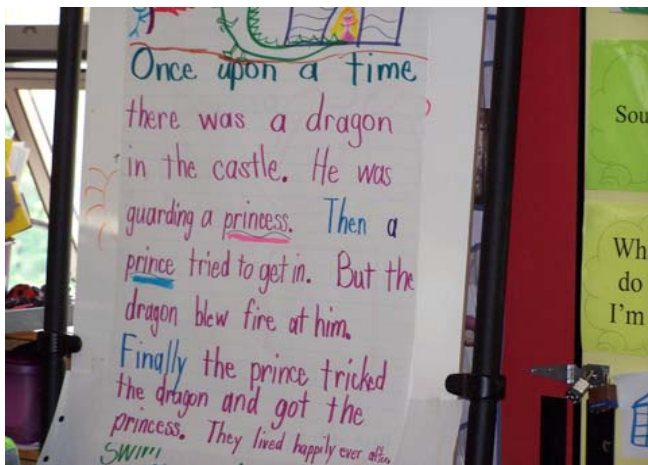 Once upon a time
there was a dragon
in the castle. He was
guarding a princess. Then a
prince tried to get in. But the
dragon blew fire at him.
Finally the prince tricked
the dragon and got the
princess. They lived happily ever after.
SWIM
Sou
Wh
do
I'm